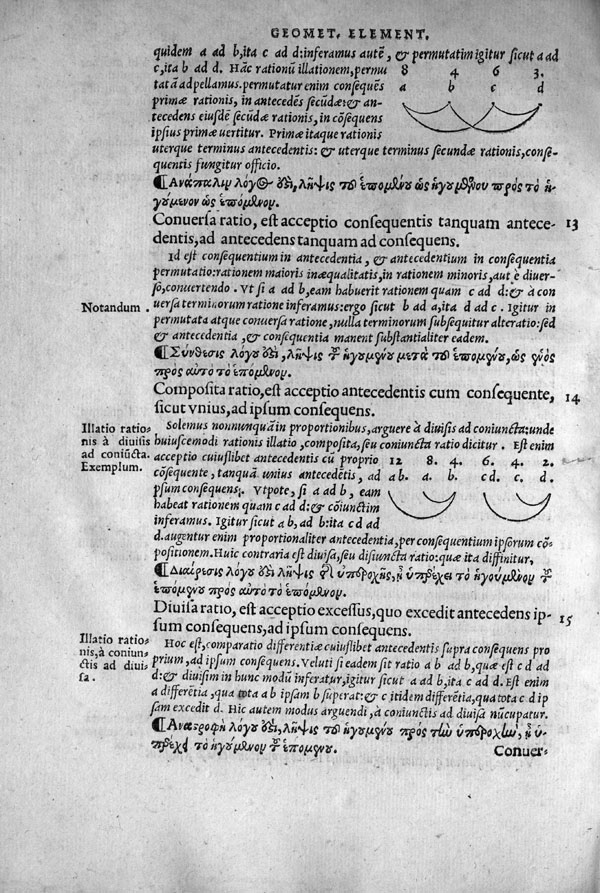 GEOMET. ELEMENT.
quidem a ad b, ita c ad d: inferamus autē, & permutatim igitur sicut a ad
c, ita b ad d. Hāc rationū illationem, permu
tatā adpellamus. permutatur enim consequēs
primæ rationis, in antecedēs secūdæ: & an-
tecedens eiusdē secūdæ rationis, in cōsequens
ipsius primæ uertitur. Primæ itaque rationis
8 4. 6 3.
a b c d
uterque terminus antecedentis: & uterque terminus secundæ rationis, conse-
quentis fungitur officio.
¶Ἀνάπαλιν λόγος ὅτι, λῆψις τοῦ ἑπομένου ὡς ἡγουμένου πρὸς τὸ ἡ-
γούμενον ὡς ἑπόμενον.
Conuersa ratio, est acceptio consequentis tanquam antece-
dentis, ad antecedens tanquam ad consequens.
13
Id est consequentium in antecedentia, & antecedentium in consequentia
permutatio: rationem maioris inæqualitatis, in rationem minoris, aut è diuer-
so, conuertendo. Vt si a ad b, eam habuerit rationem quam c ad d: & à con
uersa terminorum ratione inferamus: ergo sicut b ad a, ita d ad c. Igitur in
Notandum.
permutata atque conuersa ratione, nulla terminorum subsequitur alteratio: sed
& antecedentia, & consequentia manent substantialiter eadem.
¶Σύνθεσις λόγου ὅτι, λῆψις τοῦ ἡγουμένου μετὰ τοῦ ἑπομένου, ὡς ἑνὸς
πρὸς αὐτὸ τὸ ἑπόμενον.
Composita ratio, est acceptio antecedentis cum consequente,
sicut vnius, ad ipsum consequens.
14
Illatio ratio
nis à diuisis
ad coniūcta.
Exemplum.
Solemus nonnunquā in proportionibus, arguere à diuisis ad coniuncta: unde
huiuscemodi rationis illatio, composita, seu coniuncta ratio dicitur. Est enim
acceptio cuiuslibet antecedentis cū proprio
cōsequente, tanquā unius antecedētis, ad
ipsum consequens. Vtpote, si a ad b, eam
habeat rationem quam c ad d: & cōiunctim
inferamus. Igitur sicut a b, ad b: ita c d ad
12 8. 4. 6. 4. 2.
ab. a. b. cd. c. d.
d. augentur enim proportionaliter antecedentia, per consequentium ipsorum cō-
positionem. Huic contraria est diuisa, seu disiuncta ratio: quæ ita diffinitur,
¶Διαίρεσις λόγου ὅτι λῆψις τῆς ὑπεροχῆς, ᾗ ὑπερέχει τὸ ἡγούμενον τοῦ
ἑπομένου πρὸς αὐτὸ τὸ ἑπόμενον.
Diuisa ratio, est acceptio excessus, quo excedit antecedens ip-
sum consequens, ad ipsum consequens.
15
Illatio ratio-
nis, à coniun-
ctis ad diui-
sa.
Hoc est, comparatio differentiæ cuiuslibet antecedentis supra consequens pro
prium, ad ipsum consequens. Veluti si eadem sit ratio a b ad b, quæ est c d ad
d: & diuisim in hunc modū inferatur, igitur sicut a ad b, ita c ad d. Est enim
a differētia, qua tota a b ipsam b superat: & c itidem differētia, qua tota c d ip
sam excedit d. Hic autem modus arguendi, à coniunctis ad diuisa nūcupatur.
¶Ἀναστροφὴ λόγου ὅτι, λῆψις τοῦ ἡγουμένου πρὸς τὴν ὑπεροχὴν, ᾗ ὑ-
περέχει τὸ ἡγούμενον τοῦ ἑπομένου.
Conuer-